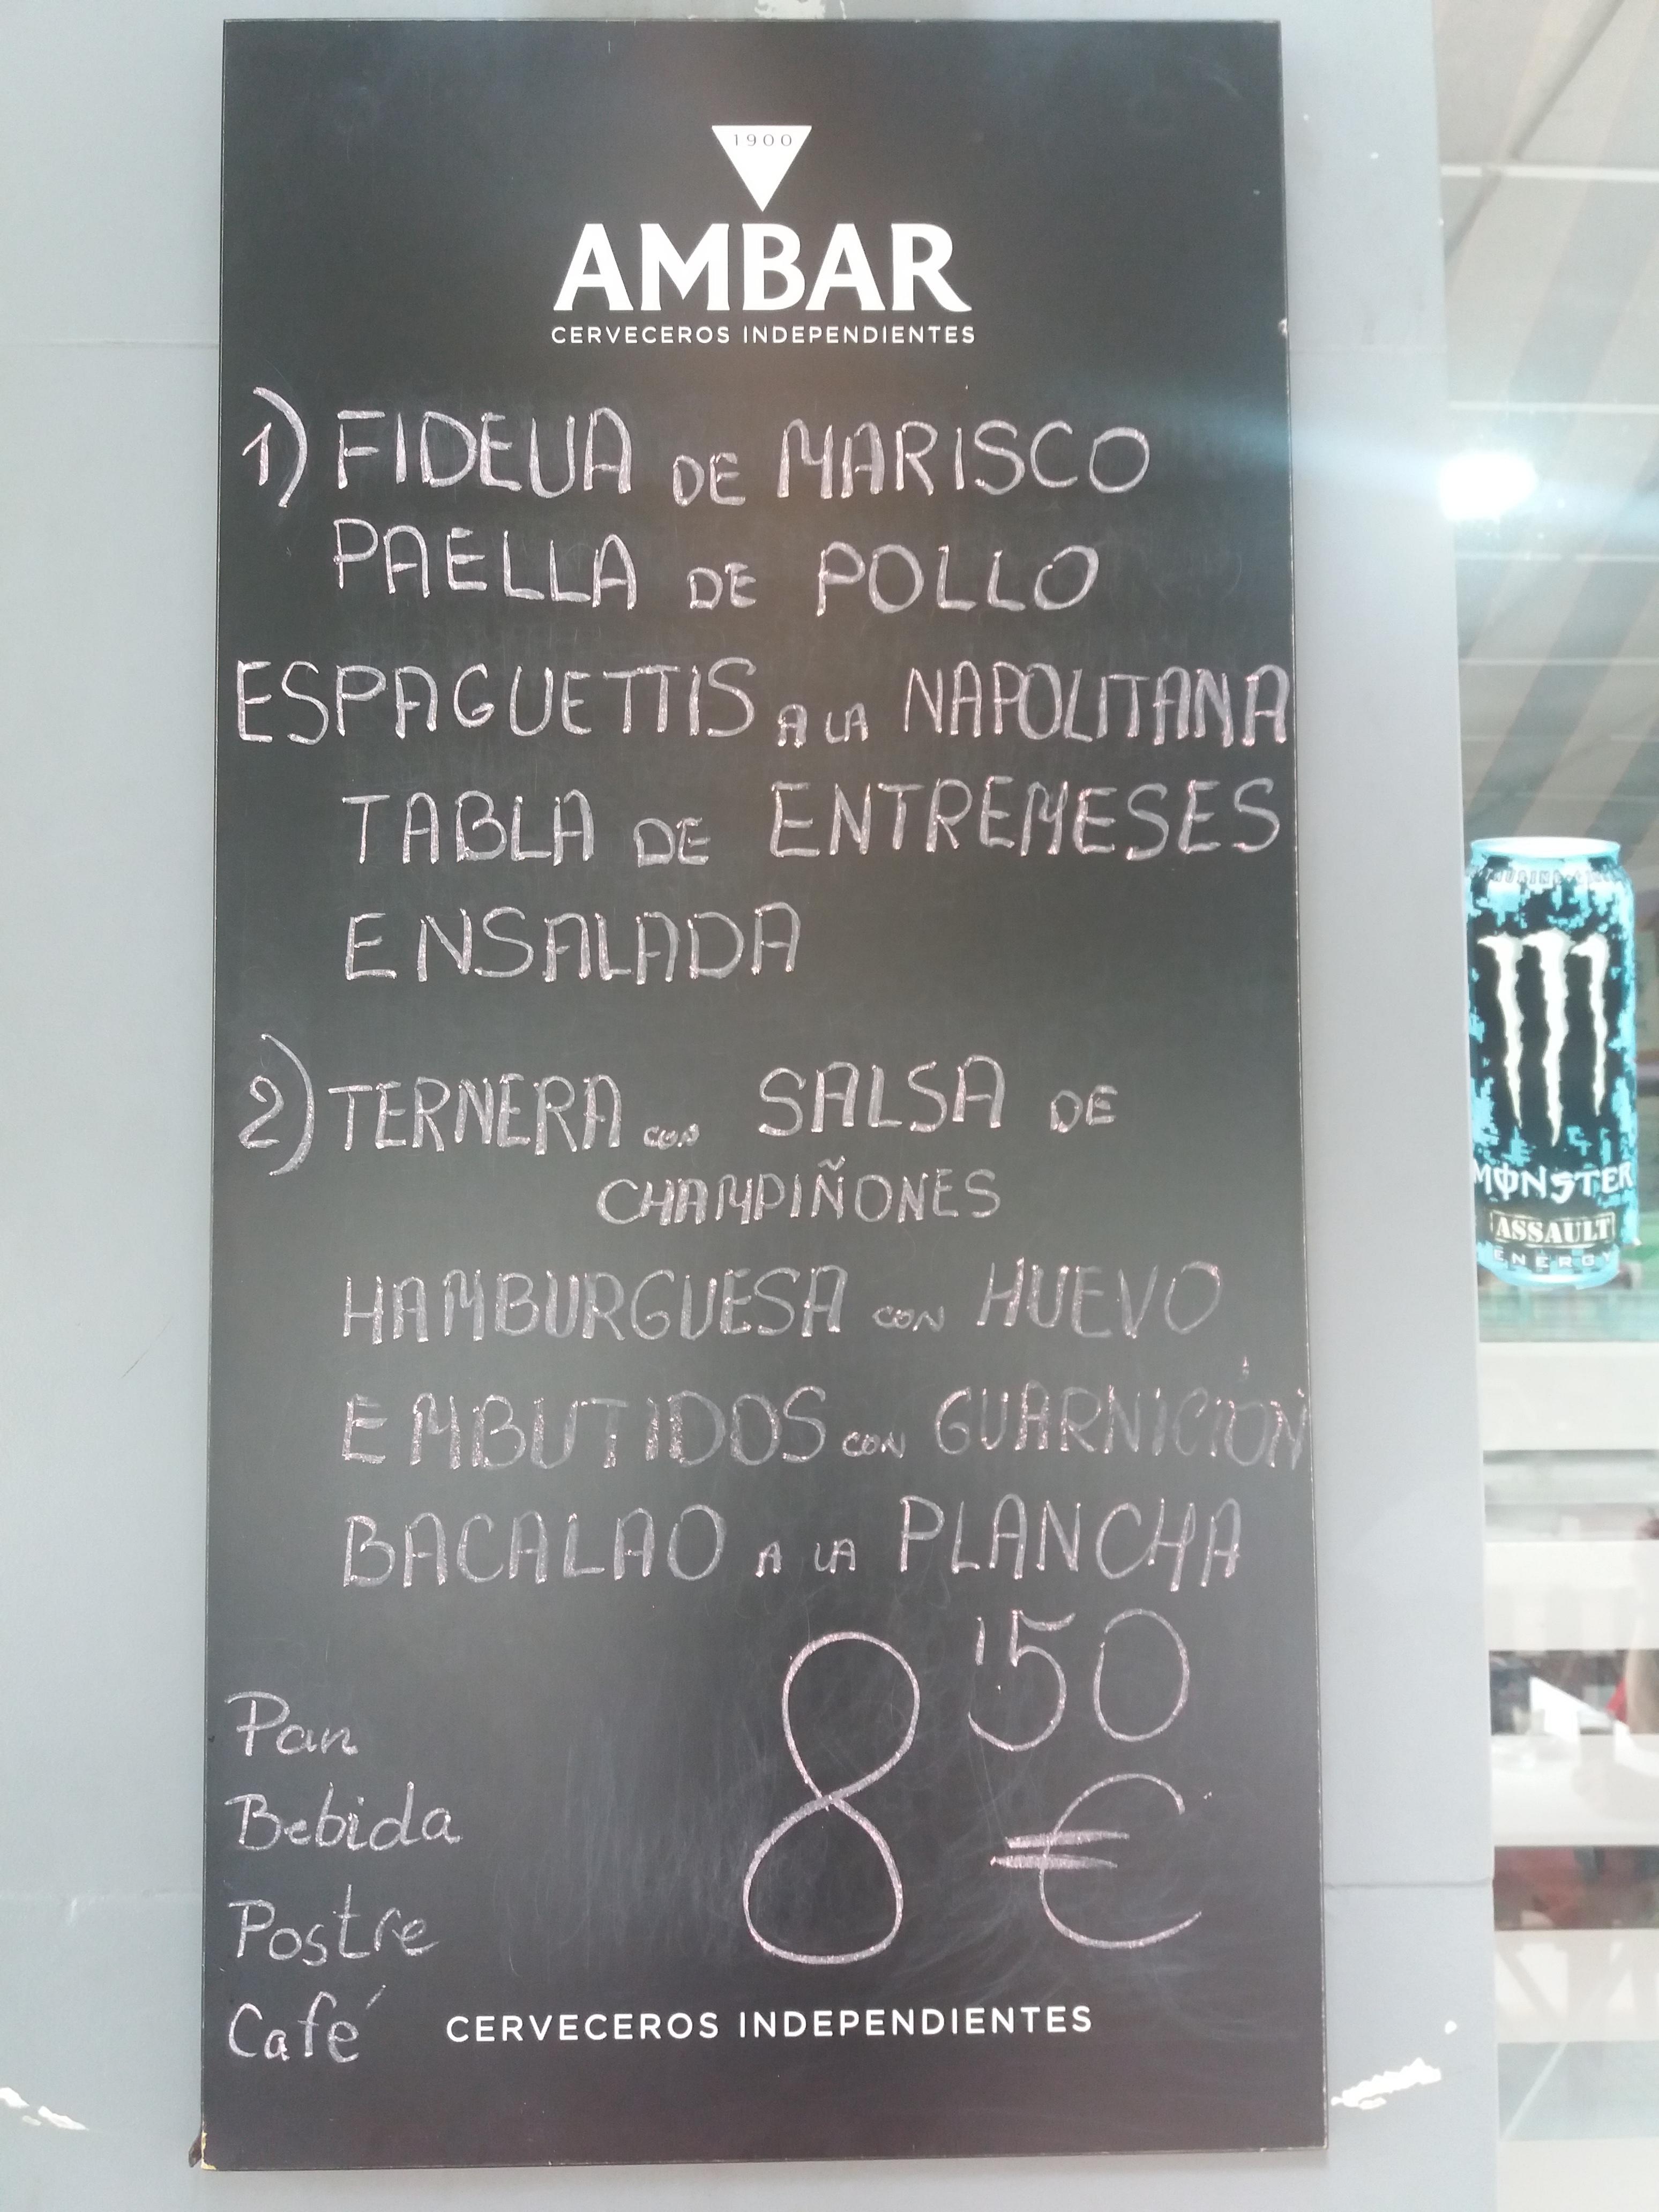 1900
AMBAR
CERVECEROS INDEPENDIENTES
1) FIDEUA DE MARISCO
PAELLA DE POLLO
ESPAGUETTIS A LA NAPOLITANA
TABLA DE ENTREMESES
ENSALADA
2) TERNERA CON SALSA DE
CHAMPIÑONES
HAMBURGUESA CON HUEVO
EMBUTIDOS CON GUARNICIÓN
BACALAO A LA PLANCHA
8'50 €
Pan
Bebida
Postre
Café
CERVECEROS INDEPENDIENTES
MONSTER
ASSAULT
ENERGY